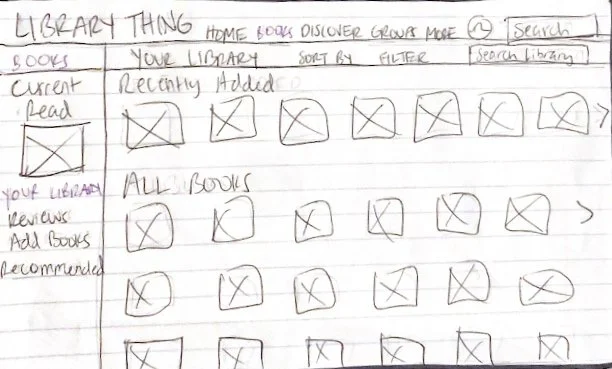 LIBRARY THING HOME BOOKS DISCOVER GROUPS MORE Search
BOOKS YOUR LIBRARY SORT BY FILTER Search Library
Current
Read
Recently Added
YOUR LIBRARY
Reviews
Add Books
Recommended
ALL BOOKS